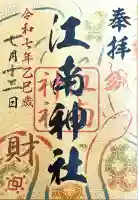 奉拝
江南神社
令和七年乙巳歳
七月十二日
財